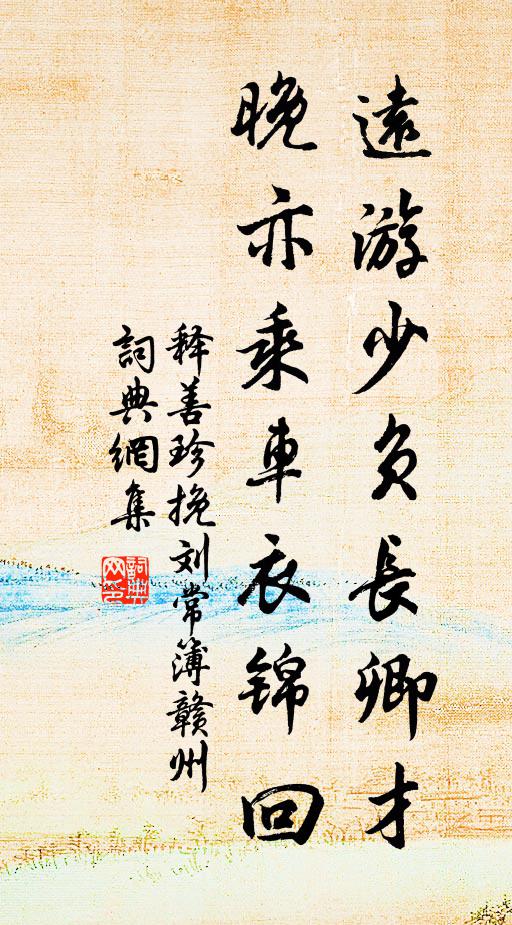 遠游少負長卿才
晚亦乘車衣錦回
释善珍挽刘常簿赣州
詞典網集
詞典網印